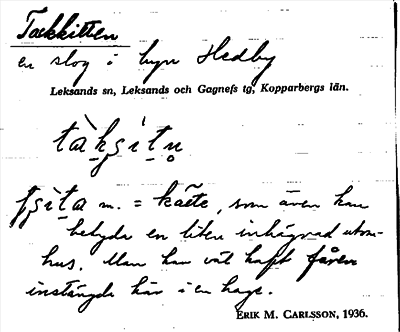 Takkitten
en slog i byn Hedby
Leksands sn, Leksands och Gagnefs tg, Kopparbergs län.
tàkʂitn̥
ʂita m. = kätte, som även kan
betyda en liten inhägnad utom-
hus. Man har väl haft fåren
instängda här i en hage.
ERIK M. CARLSSON, 1936.